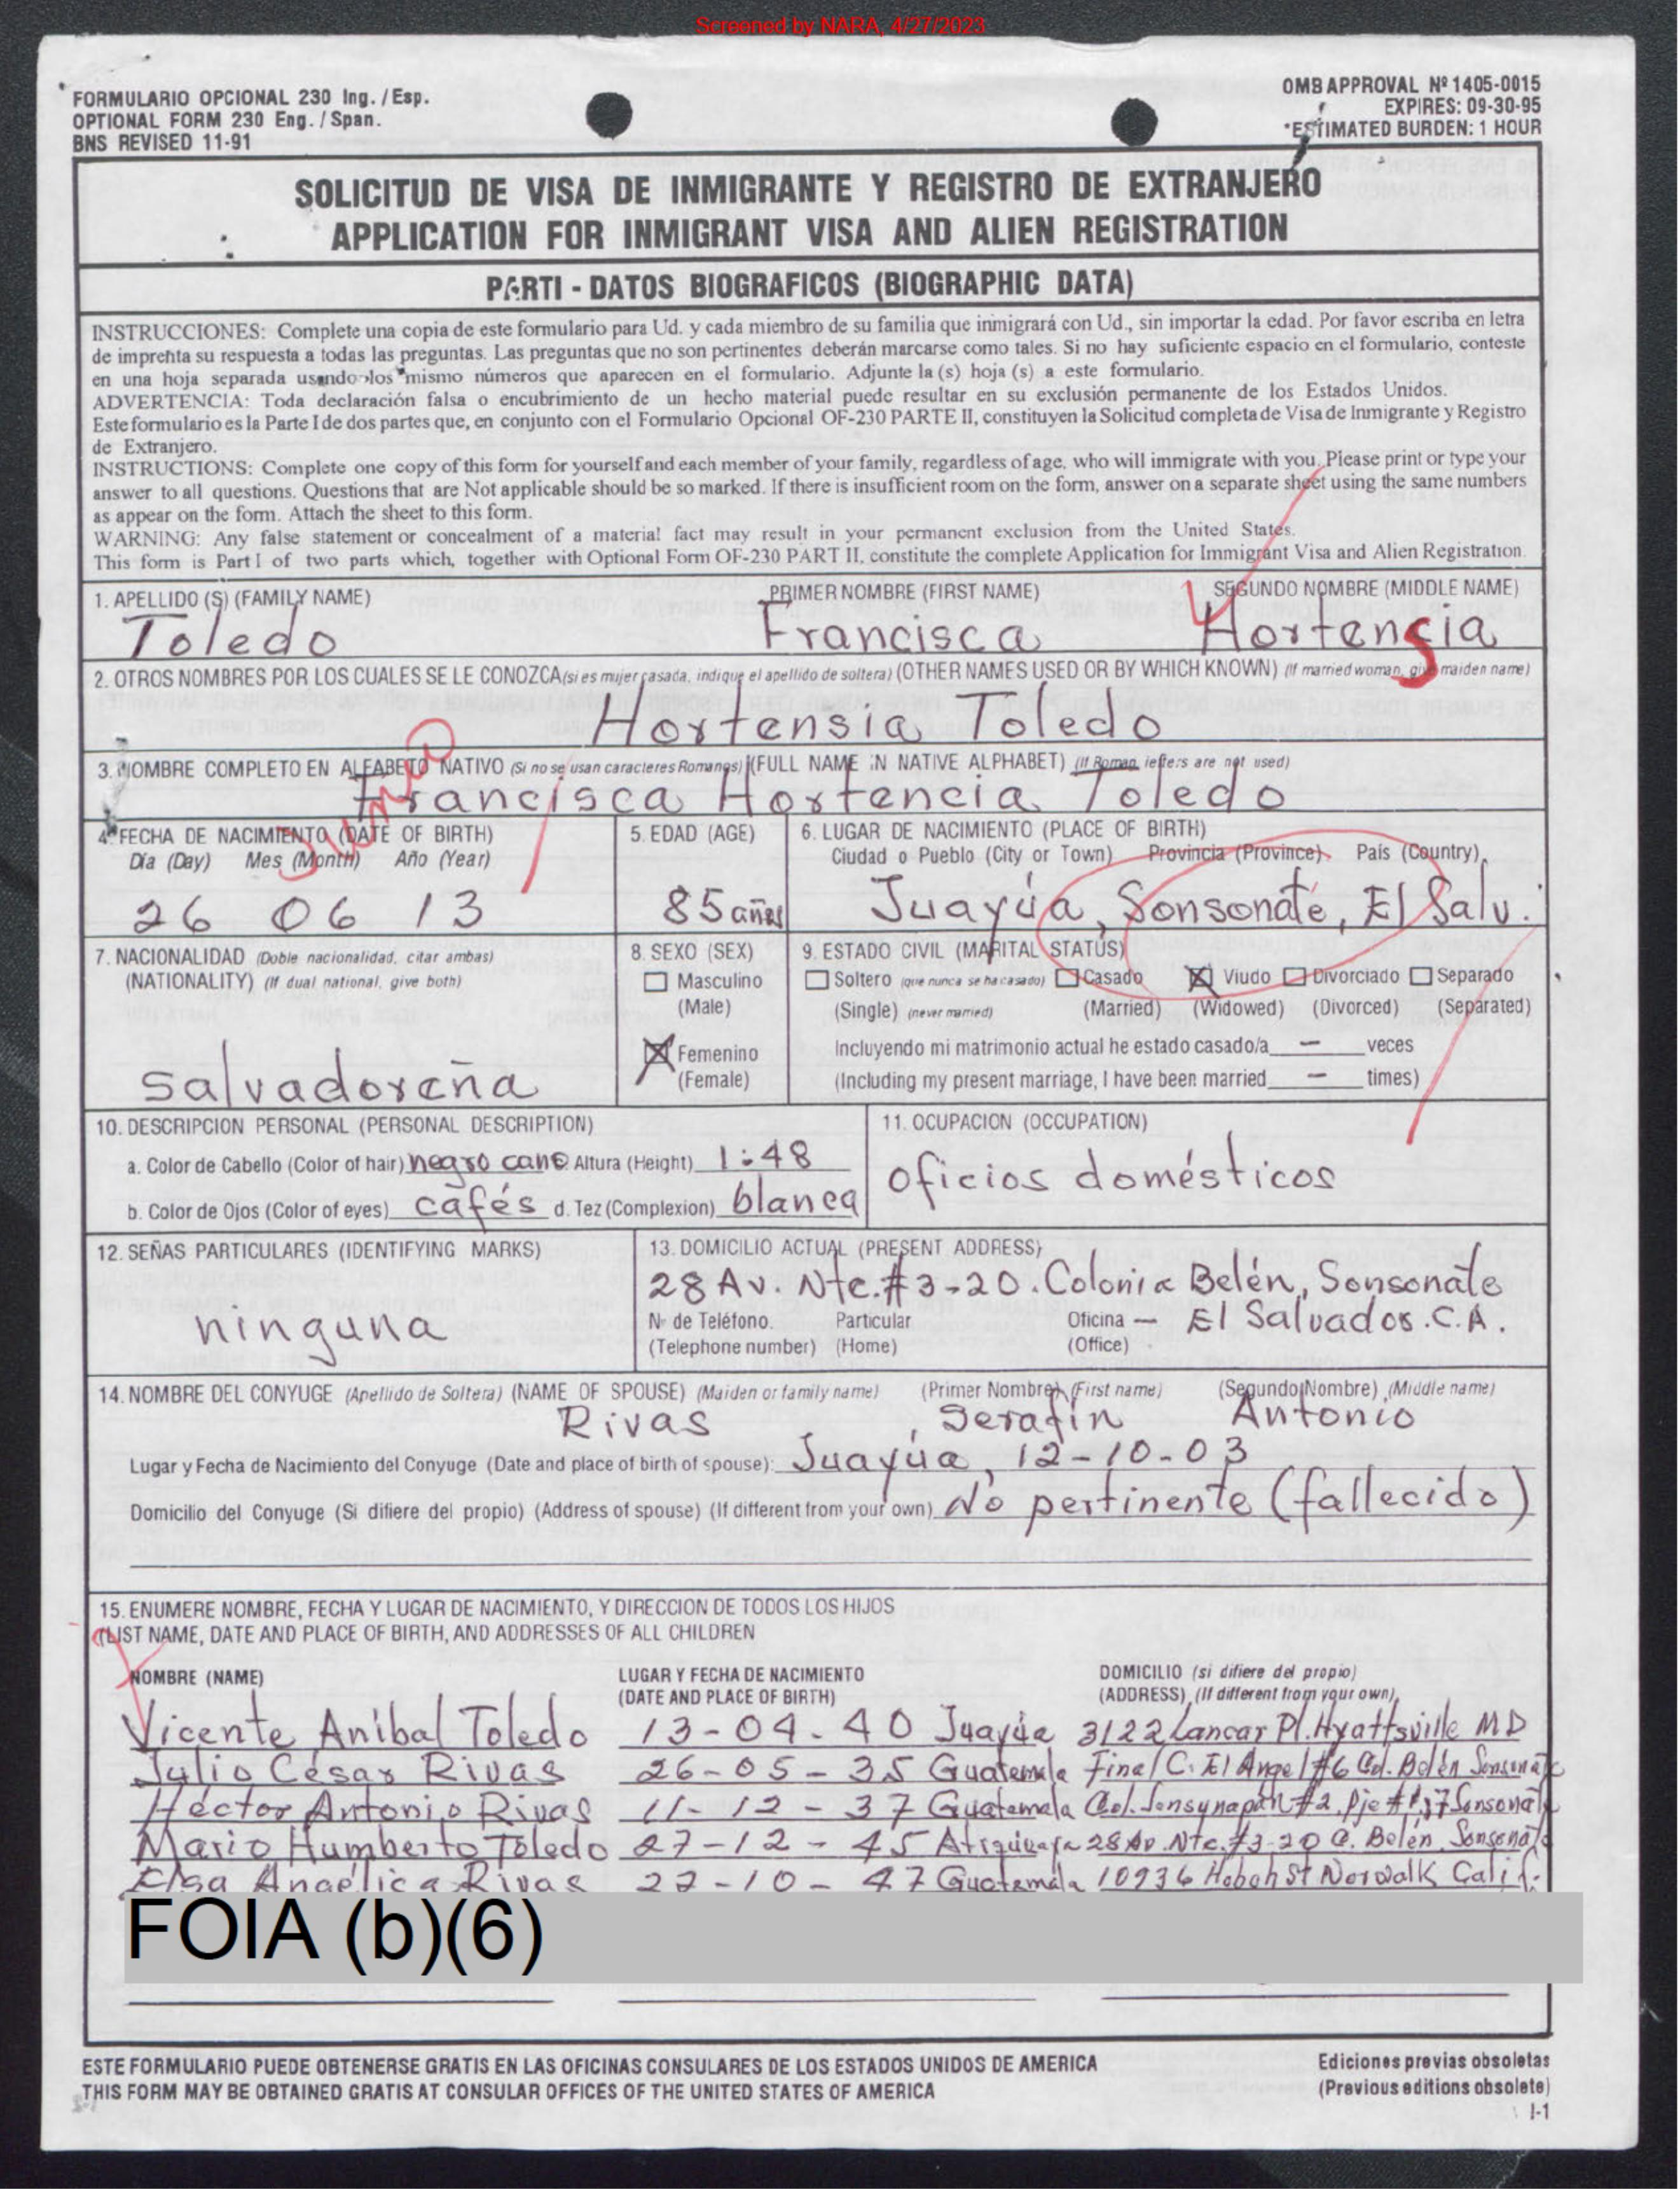 Screened by NARA, 4/27/2023
FORMULARIO OPCIONAL 230 Ing. / Esp.
OPTIONAL FORM 230 Eng. / Span.
BNS REVISED 11-91
OMB APPROVAL Nº 1405-0015
EXPIRES: 09-30-95
*ESTIMATED BURDEN: 1 HOUR
SOLICITUD DE VISA DE INMIGRANTE Y REGISTRO DE EXTRANJERO
APPLICATION FOR INMIGRANT VISA AND ALIEN REGISTRATION
PARTI - DATOS BIOGRAFICOS (BIOGRAPHIC DATA)
INSTRUCCIONES: Complete una copia de este formulario para Ud. y cada miembro de su familia que inmigrará con Ud., sin importar la edad. Por favor escriba en letra
de imprenta su respuesta a todas las preguntas. Las preguntas que no son pertinentes deberán marcarse como tales. Si no hay suficiente espacio en el formulario, conteste
en una hoja separada usando los mismo números que aparecen en el formulario. Adjunte la (s) hoja (s) a este formulario.
ADVERTENCIA: Toda declaración falsa o encubrimiento de un hecho material puede resultar en su exclusión permanente de los Estados Unidos.
Este formulario es la Parte I de dos partes que, en conjunto con el Formulario Opcional OF-230 PARTE II, constituyen la Solicitud completa de Visa de Inmigrante y Registro
de Extranjero.
INSTRUCTIONS: Complete one copy of this form for yourself and each member of your family, regardless of age, who will immigrate with you. Please print or type your
answer to all questions. Questions that are Not applicable should be so marked. If there is insufficient room on the form, answer on a separate sheet using the same numbers
as appear on the form. Attach the sheet to this form.
WARNING: Any false statement or concealment of a material fact may result in your permanent exclusion from the United States.
This form is Part I of two parts which, together with Optional Form OF-230 PART II, constitute the complete Application for Immigrant Visa and Alien Registration.
1. APELLIDO (S) (FAMILY NAME) PRIMER NOMBRE (FIRST NAME) SEGUNDO NOMBRE (MIDDLE NAME)
Toledo Francisca Hortensia
2. OTROS NOMBRES POR LOS CUALES SE LE CONOZCA (si es mujer casada, indique el apellido de soltera) (OTHER NAMES USED OR BY WHICH KNOWN) (If married woman, give maiden name)
Hortensia Toledo
3. NOMBRE COMPLETO EN ALFABETO NATIVO (Si no se usan caracteres Romanos) (FULL NAME IN NATIVE ALPHABET) (If Roman letters are not used)
Francisca Hortencia Toledo
4. FECHA DE NACIMIENTO (DATE OF BIRTH)
Día (Day) Mes (Month) Año (Year)
26 06 13
5. EDAD (AGE)
85 años
6. LUGAR DE NACIMIENTO (PLACE OF BIRTH)
Ciudad o Pueblo (City or Town) Provincia (Province) País (Country)
Juayúa, Sonsonate, El Salv.
7. NACIONALIDAD (Doble nacionalidad, citar ambas)
(NATIONALITY) (If dual national, give both)
salvadoreña
8. SEXO (SEX)
Masculino
(Male)
Femenino
(Female)
9. ESTADO CIVIL (MARITAL STATUS)
Soltero (que nunca se ha casado) Casado Viudo Divorciado Separado
(Single) (never married) (Married) (Widowed) (Divorced) (Separated)
Incluyendo mi matrimonio actual he estado casado/a — veces
(Including my present marriage, I have been married — times)
10. DESCRIPCION PERSONAL (PERSONAL DESCRIPTION)
a. Color de Cabello (Color of hair) negro cano Altura (Height) 1:48
b. Color de Ojos (Color of eyes) cafés d. Tez (Complexion) blanca
11. OCUPACION (OCCUPATION)
oficios domésticos
12. SEÑAS PARTICULARES (IDENTIFYING MARKS)
ninguna
13. DOMICILIO ACTUAL (PRESENT ADDRESS)
28 Av. Nte. #3-20. Colonia Belén, Sonsonate
Nº de Teléfono. Particular Oficina — El Salvador. C.A.
(Telephone number) (Home) (Office)
14. NOMBRE DEL CONYUGE (Apellido de Soltera) (NAME OF SPOUSE) (Maiden or family name) (Primer Nombre) (First name) (Segundo Nombre) (Middle name)
Rivas, Serafín Antonio
Lugar y Fecha de Nacimiento del Conyuge (Date and place of birth of spouse): Juayúa, 12-10-03
Domicilio del Conyuge (Si difiere del propio) (Address of spouse) (If different from your own) No pertinente (fallecido)
15. ENUMERE NOMBRE, FECHA Y LUGAR DE NACIMIENTO, Y DIRECCION DE TODOS LOS HIJOS
(LIST NAME, DATE AND PLACE OF BIRTH, AND ADDRESSES OF ALL CHILDREN
NOMBRE (NAME) LUGAR Y FECHA DE NACIMIENTO DOMICILIO (si difiere del propio)
(DATE AND PLACE OF BIRTH) (ADDRESS) (If different from your own)
Vicente Aníbal Toledo 13-04-40 Juayúa 3122 Lancar Pl. Hyattsville MD
Julio César Rivas 26-05-35 Guatemala Final C. El Angel #6 Col. Belén Sonsonate
Héctor Antonio Rivas 11-12-37 Guatemala Col. Sensunapán #2, Pje #17 Sonsonate
Mario Humberto Toledo 27-12-45 Atiquizaya 28 Av. Nte. #3-20 C. Belén Sonsonate
Elsa Angélica Rivas 22-10-47 Guatemala 10936 St Norwalk Calif.
FOIA (b)(6)
ESTE FORMULARIO PUEDE OBTENERSE GRATIS EN LAS OFICINAS CONSULARES DE LOS ESTADOS UNIDOS DE AMERICA
THIS FORM MAY BE OBTAINED GRATIS AT CONSULAR OFFICES OF THE UNITED STATES OF AMERICA
Ediciones previas obsoletas
(Previous editions obsolete)
I-1